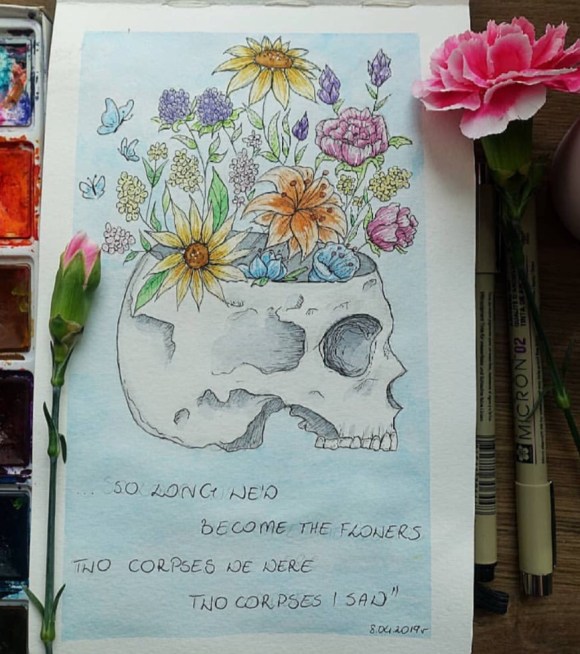 ... SO LONG WE'D
BECOME THE FLOWERS
TWO CORPSES WE WERE
TWO CORPSES I SAW"
8.04.2019r
MICRON 02